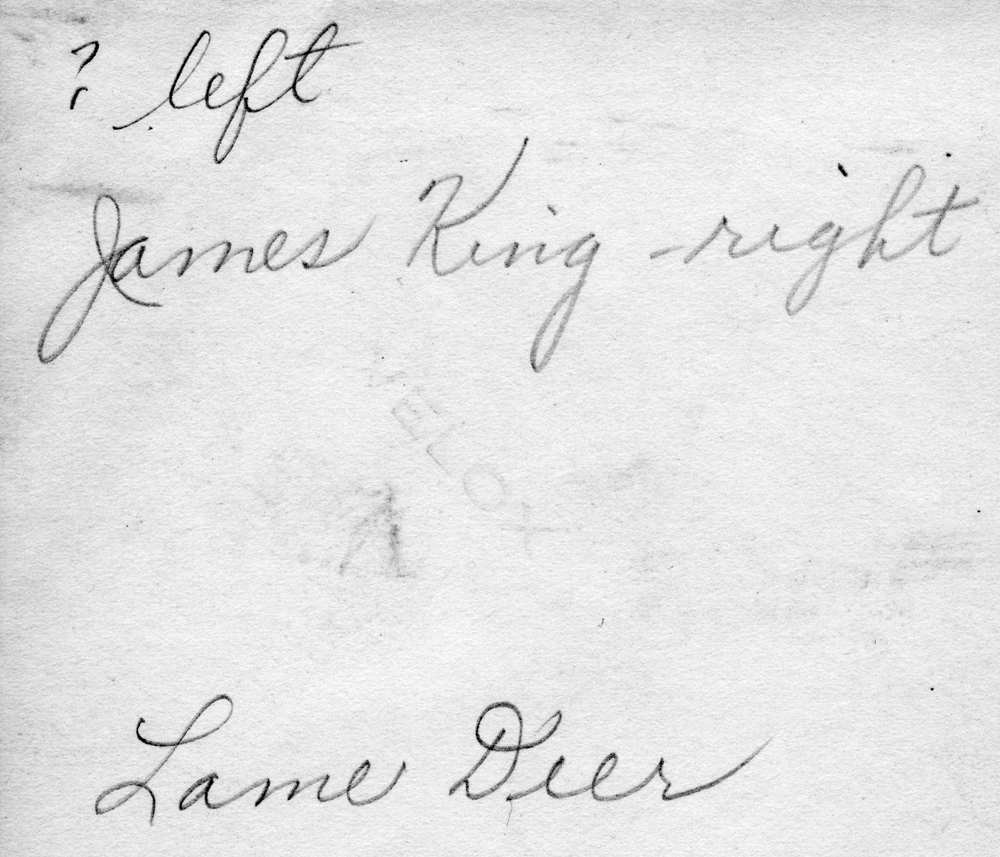 ? left
James King - right
VELOX
Lame Deer